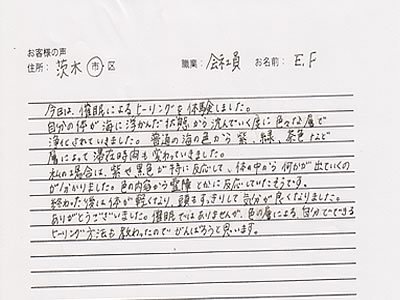 お客様の声
住所：茨木 市・区 職業：会社員 お名前：E.F
今日は、催眠によるヒーリングを体験しました。
自分の体が海に浮かんだ状態から沈んでいく度に色々な層で
浄化されていきました。普通の海の色から紫、緑、茶色など
層によって滞在時間も変わっていきました。
私の場合は、紫や黒色が特に反応して、体の中から何かが出ていくの
が分かりました。色の内容から霊障とかに反応していたそうです。
終わった後には体が軽くなり、頭もすっきりして気分が良くなりました。
ありがとうございました。催眠ではありませんが、色の層による、自分でできる
ヒーリング方法も教わったのでがんばろうと思います。